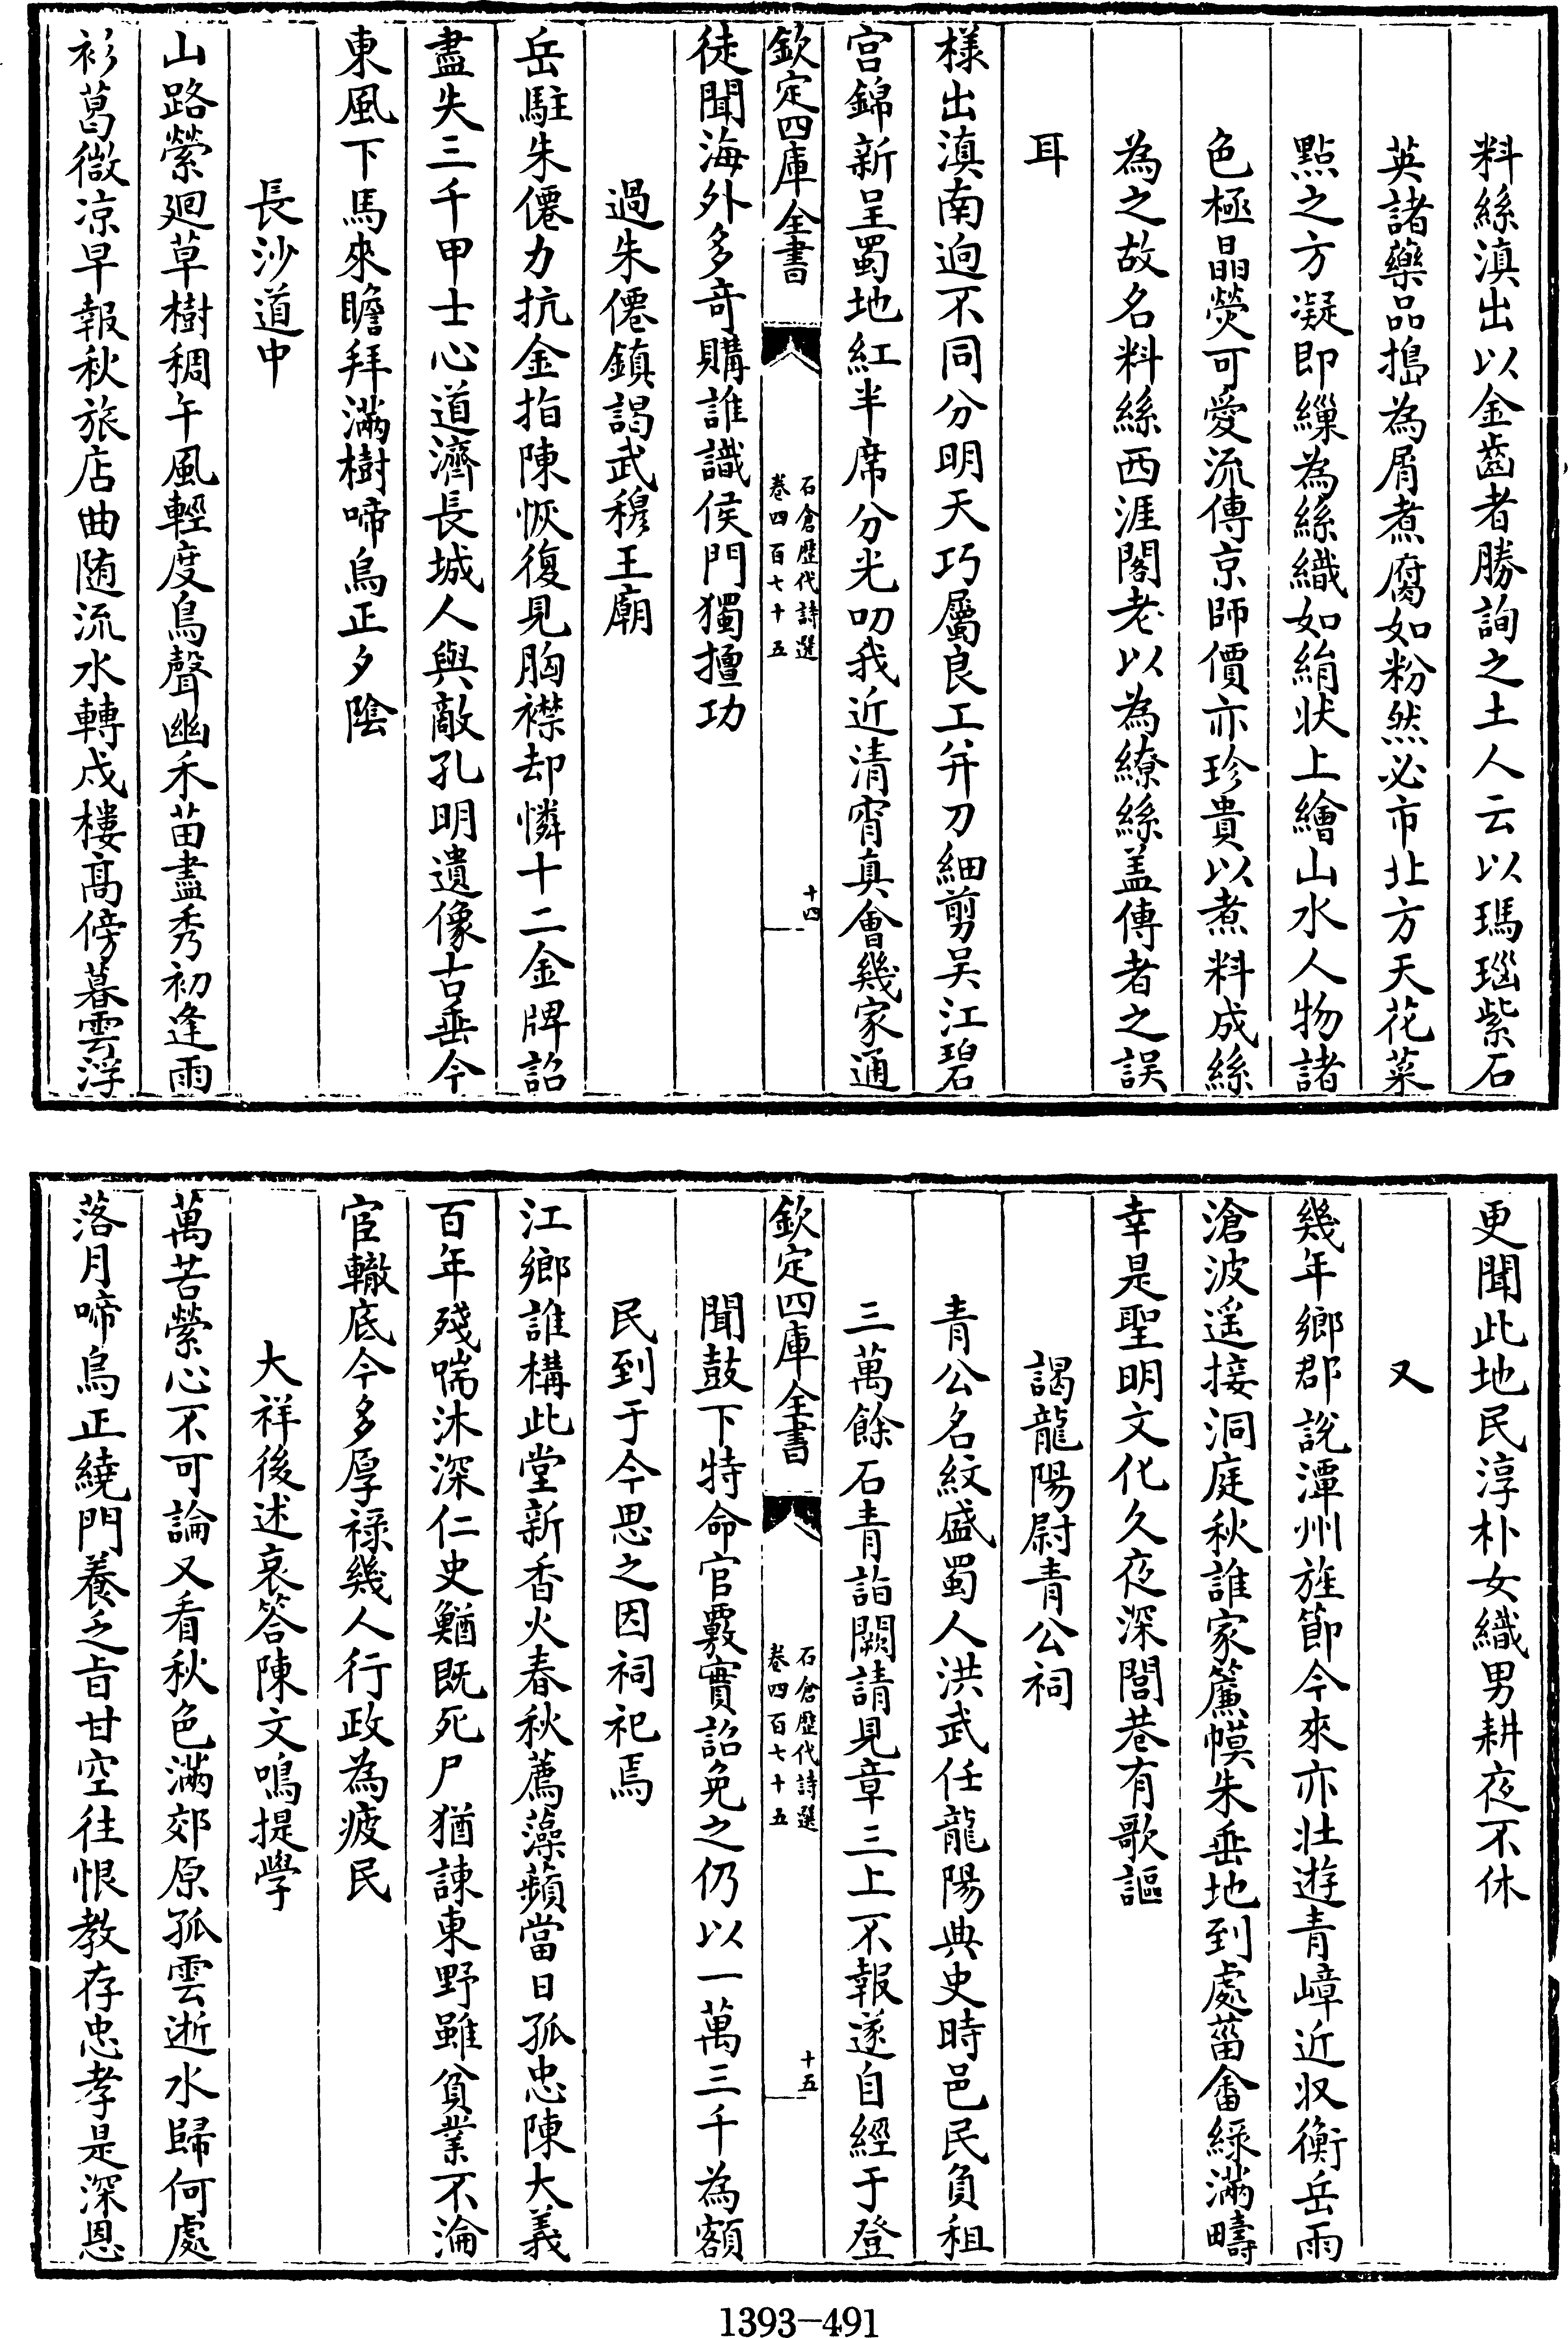 料絲滇出以金齒者勝詢之土人云以瑪瑙紫石
英諸藥品搗為屑煮腐如粉然必市北方天花菜
點之方凝即繅為絲織如絹状上繪山水人物諸
色極晶熒可愛流傳京師價亦珍貴以煮料成絲
為之故名料絲西涯閣老以為繚絲盖傳者之誤
耳
様出滇南逈不同分明天巧屬良工并刀細剪吴江碧
宫錦新呈蜀地紅半席分光叨我近清宵真會幾家通
欽定四庫全書
石倉歴代詩選
卷四百七十五
十四
徒聞海外多竒購誰識侯門獨擅功
過朱僊鎮謁武穆王廟
岳駐朱僊力抗金指陳恢復見胸襟却憐十二金牌詔
盡失三千甲士心道濟長城人與敵孔明遺像古垂今
東風下馬來瞻拜滿樹啼烏正夕陰
長沙道中
山路縈廻草樹稠午風輕度鳥聲幽禾苗盡秀初逢雨
衫葛微凉早報秋旅店曲随流水轉戍樓髙傍暮雲浮
更聞此地民淳朴女織男耕夜不休
又
幾年鄉郡說潭州旌節今來亦壮遊青嶂近収衡岳雨
滄波遥接洞庭秋誰家簾幙朱垂地到處菑畬緑滿疇
幸是聖明文化久夜深閭巷有歌謳
謁龍陽尉青公祠
青公名紋盛蜀人洪武任龍陽典史時邑民負租
三萬餘石青詣闕請見章三上不報遂自經于登
欽定四庫全書
石倉歴代詩選
卷四百七十五
十五
聞鼓下特命官覈實詔免之仍以一萬三千為額
民到于今思之因祠祀焉
江鄉誰構此堂新香火春秋薦藻蘋當日孤忠陳大義
百年殘喘沐深仁史鰌既死尸猶諌東野雖貧業不淪
宦轍底今多厚禄幾人行政為疲民
大祥後述哀答陳文鳴提學
萬苦縈心不可論又看秋色滿郊原孤雲逝水歸何處
落月啼烏正繞門養乏旨甘空往恨教存忠孝是深恩
1393-491